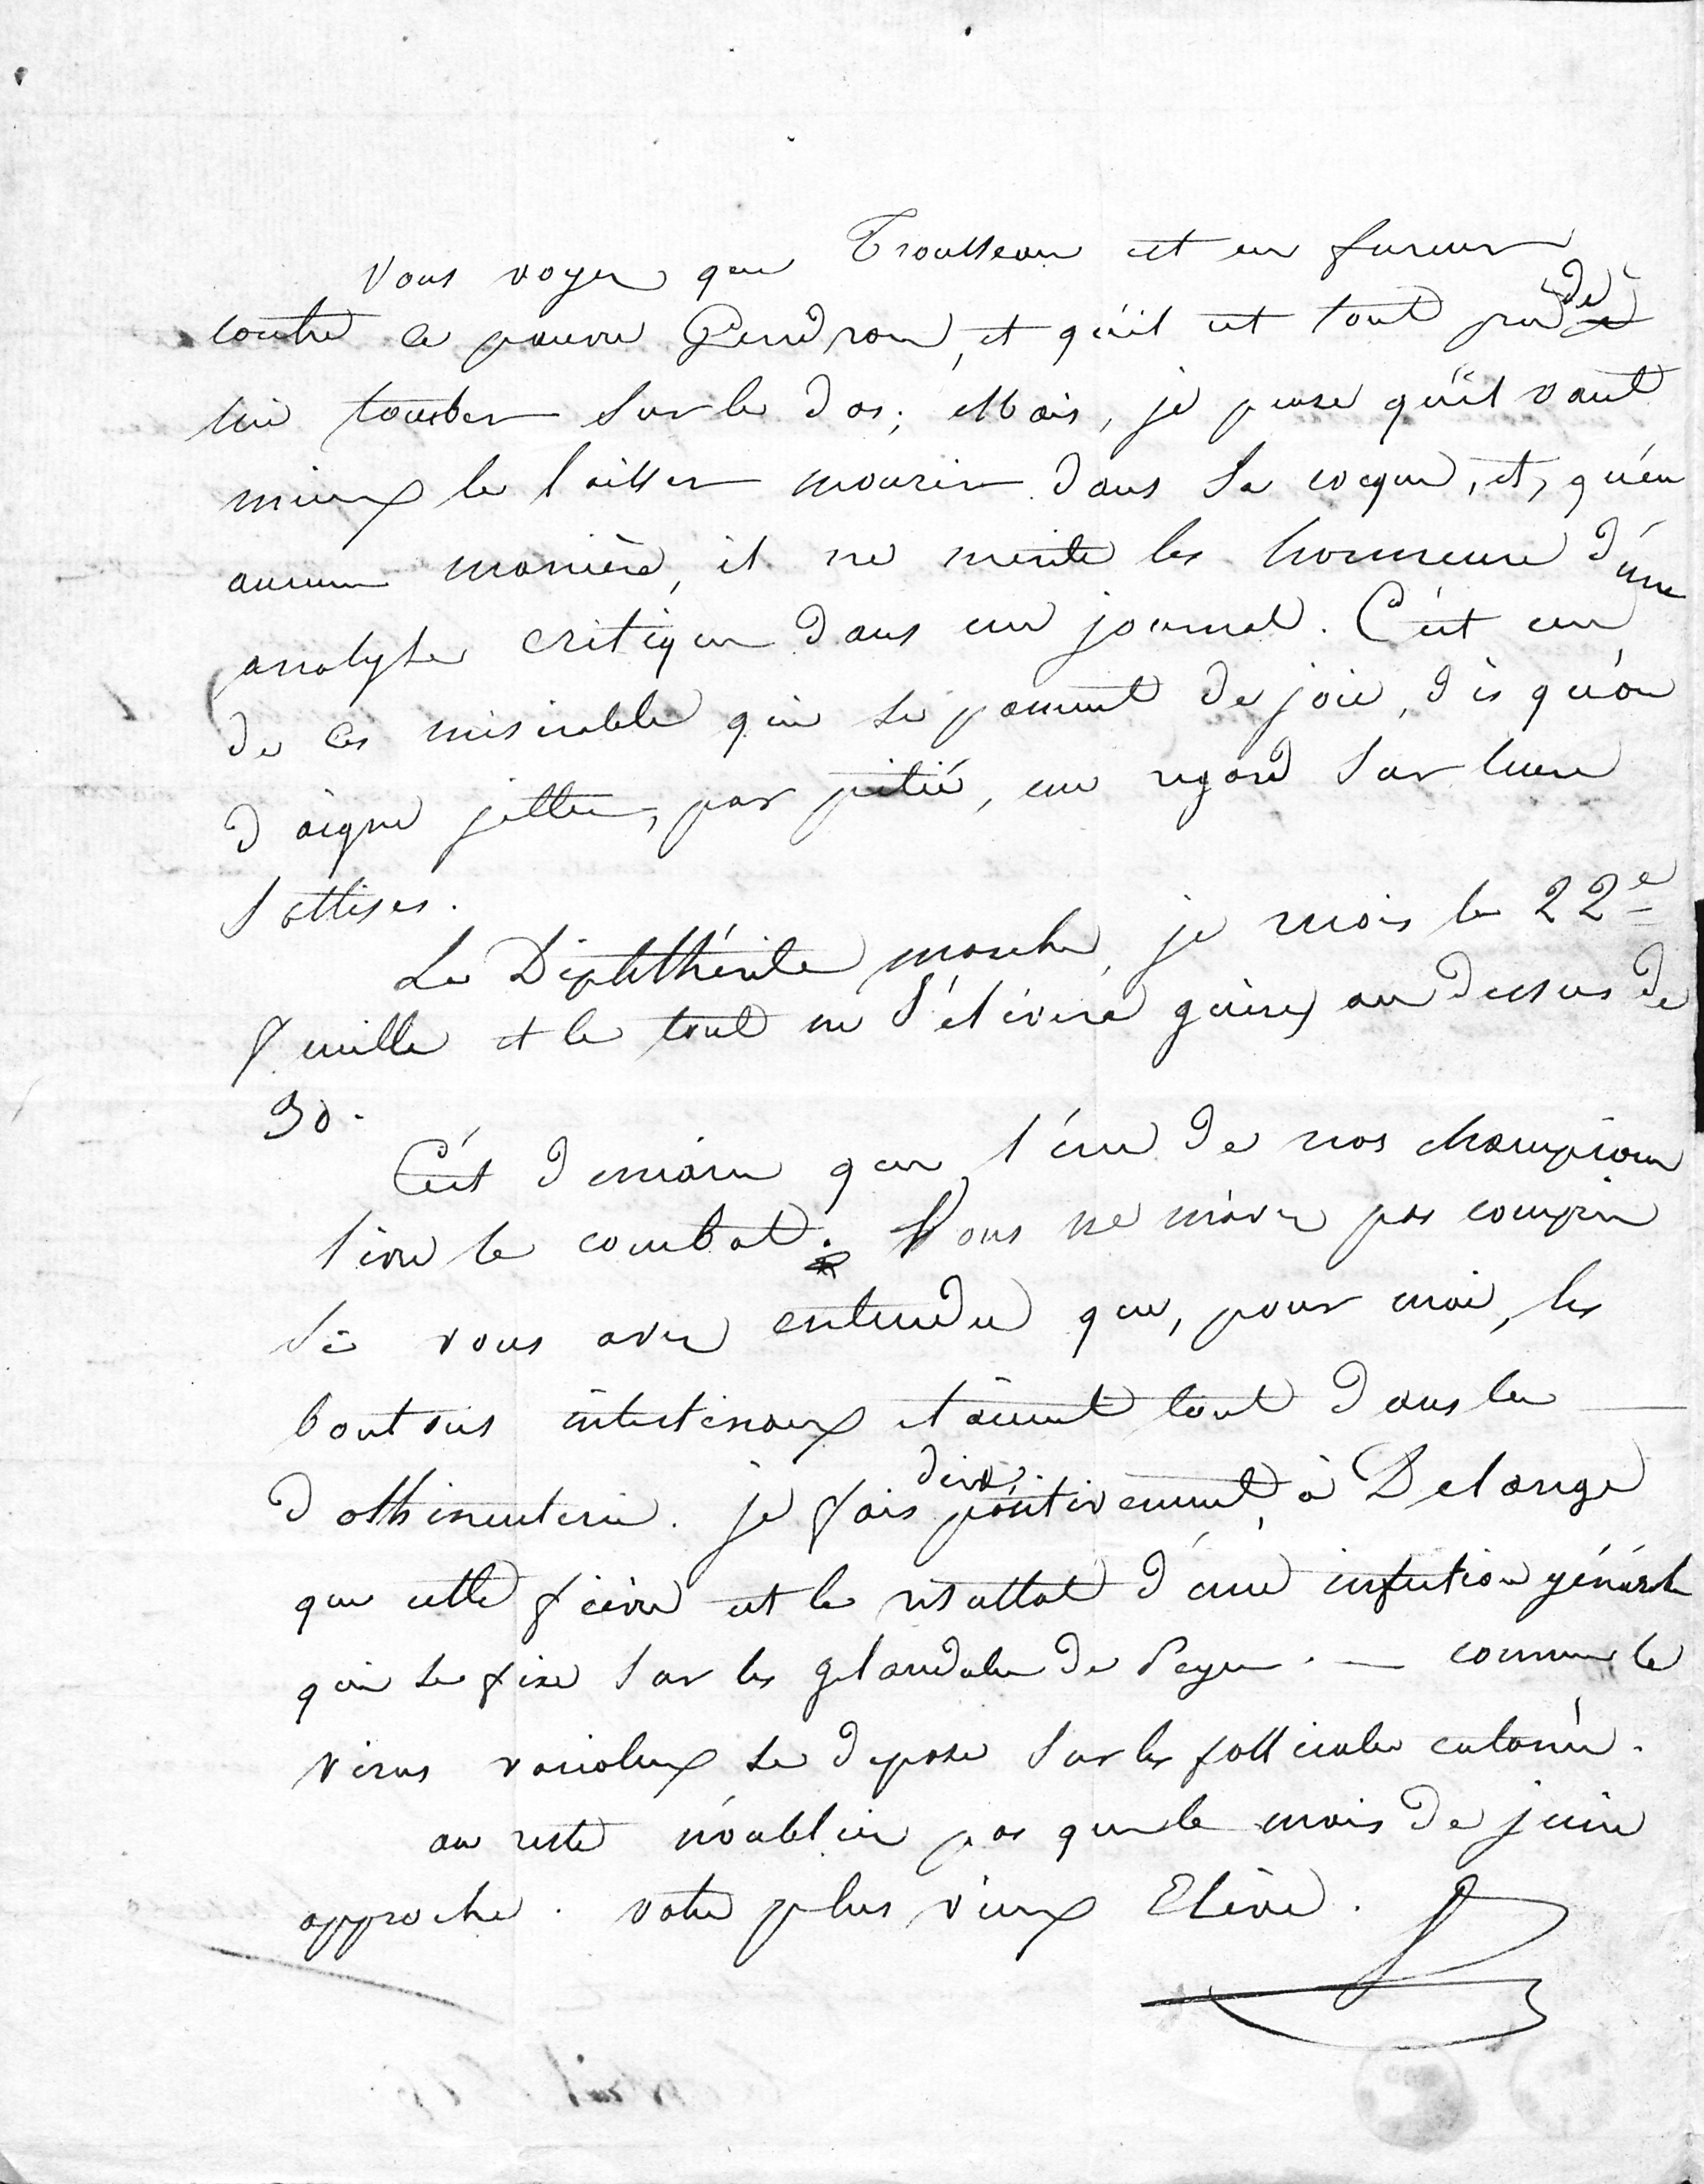 Vous voyez que Trousseau est en fureur
contre ce pauvre Gendron, et qu'il est tout près de
lui tomber sur le dos; Mais, je pense qu'il vaut
mieux le laisser mourir dans sa coque, et, qu'en
aucune manière, il ne mérite les honneurs d'une
analyse critique dans un journal. C'est un
de ces misérables qui se pament de joie, dès qu'on
daigne jetter, par pitié, un regard sur leurs
sottises.
La Diphthérite marche, je suis la 22e
feuille et le tout ne s'élévera guères au dessus de
30.
C'est demain que l'un de nos champions
livre le combat. Vous ne m'avez pas compris
si vous avez entendu que, pour moi, les
boutons intestinaux étaient tout dans la
dothinenterie. je fais dire positivement, à Delange
que cette fièvre est le résultat d'une infection générale
qui se fixe sur les glandules de Peyer. — comme le
virus varioleux se dépose sur les follicules cutanés.
au reste n'oubliez pas que le mois de juin
approche. votre plus vieux Elève.